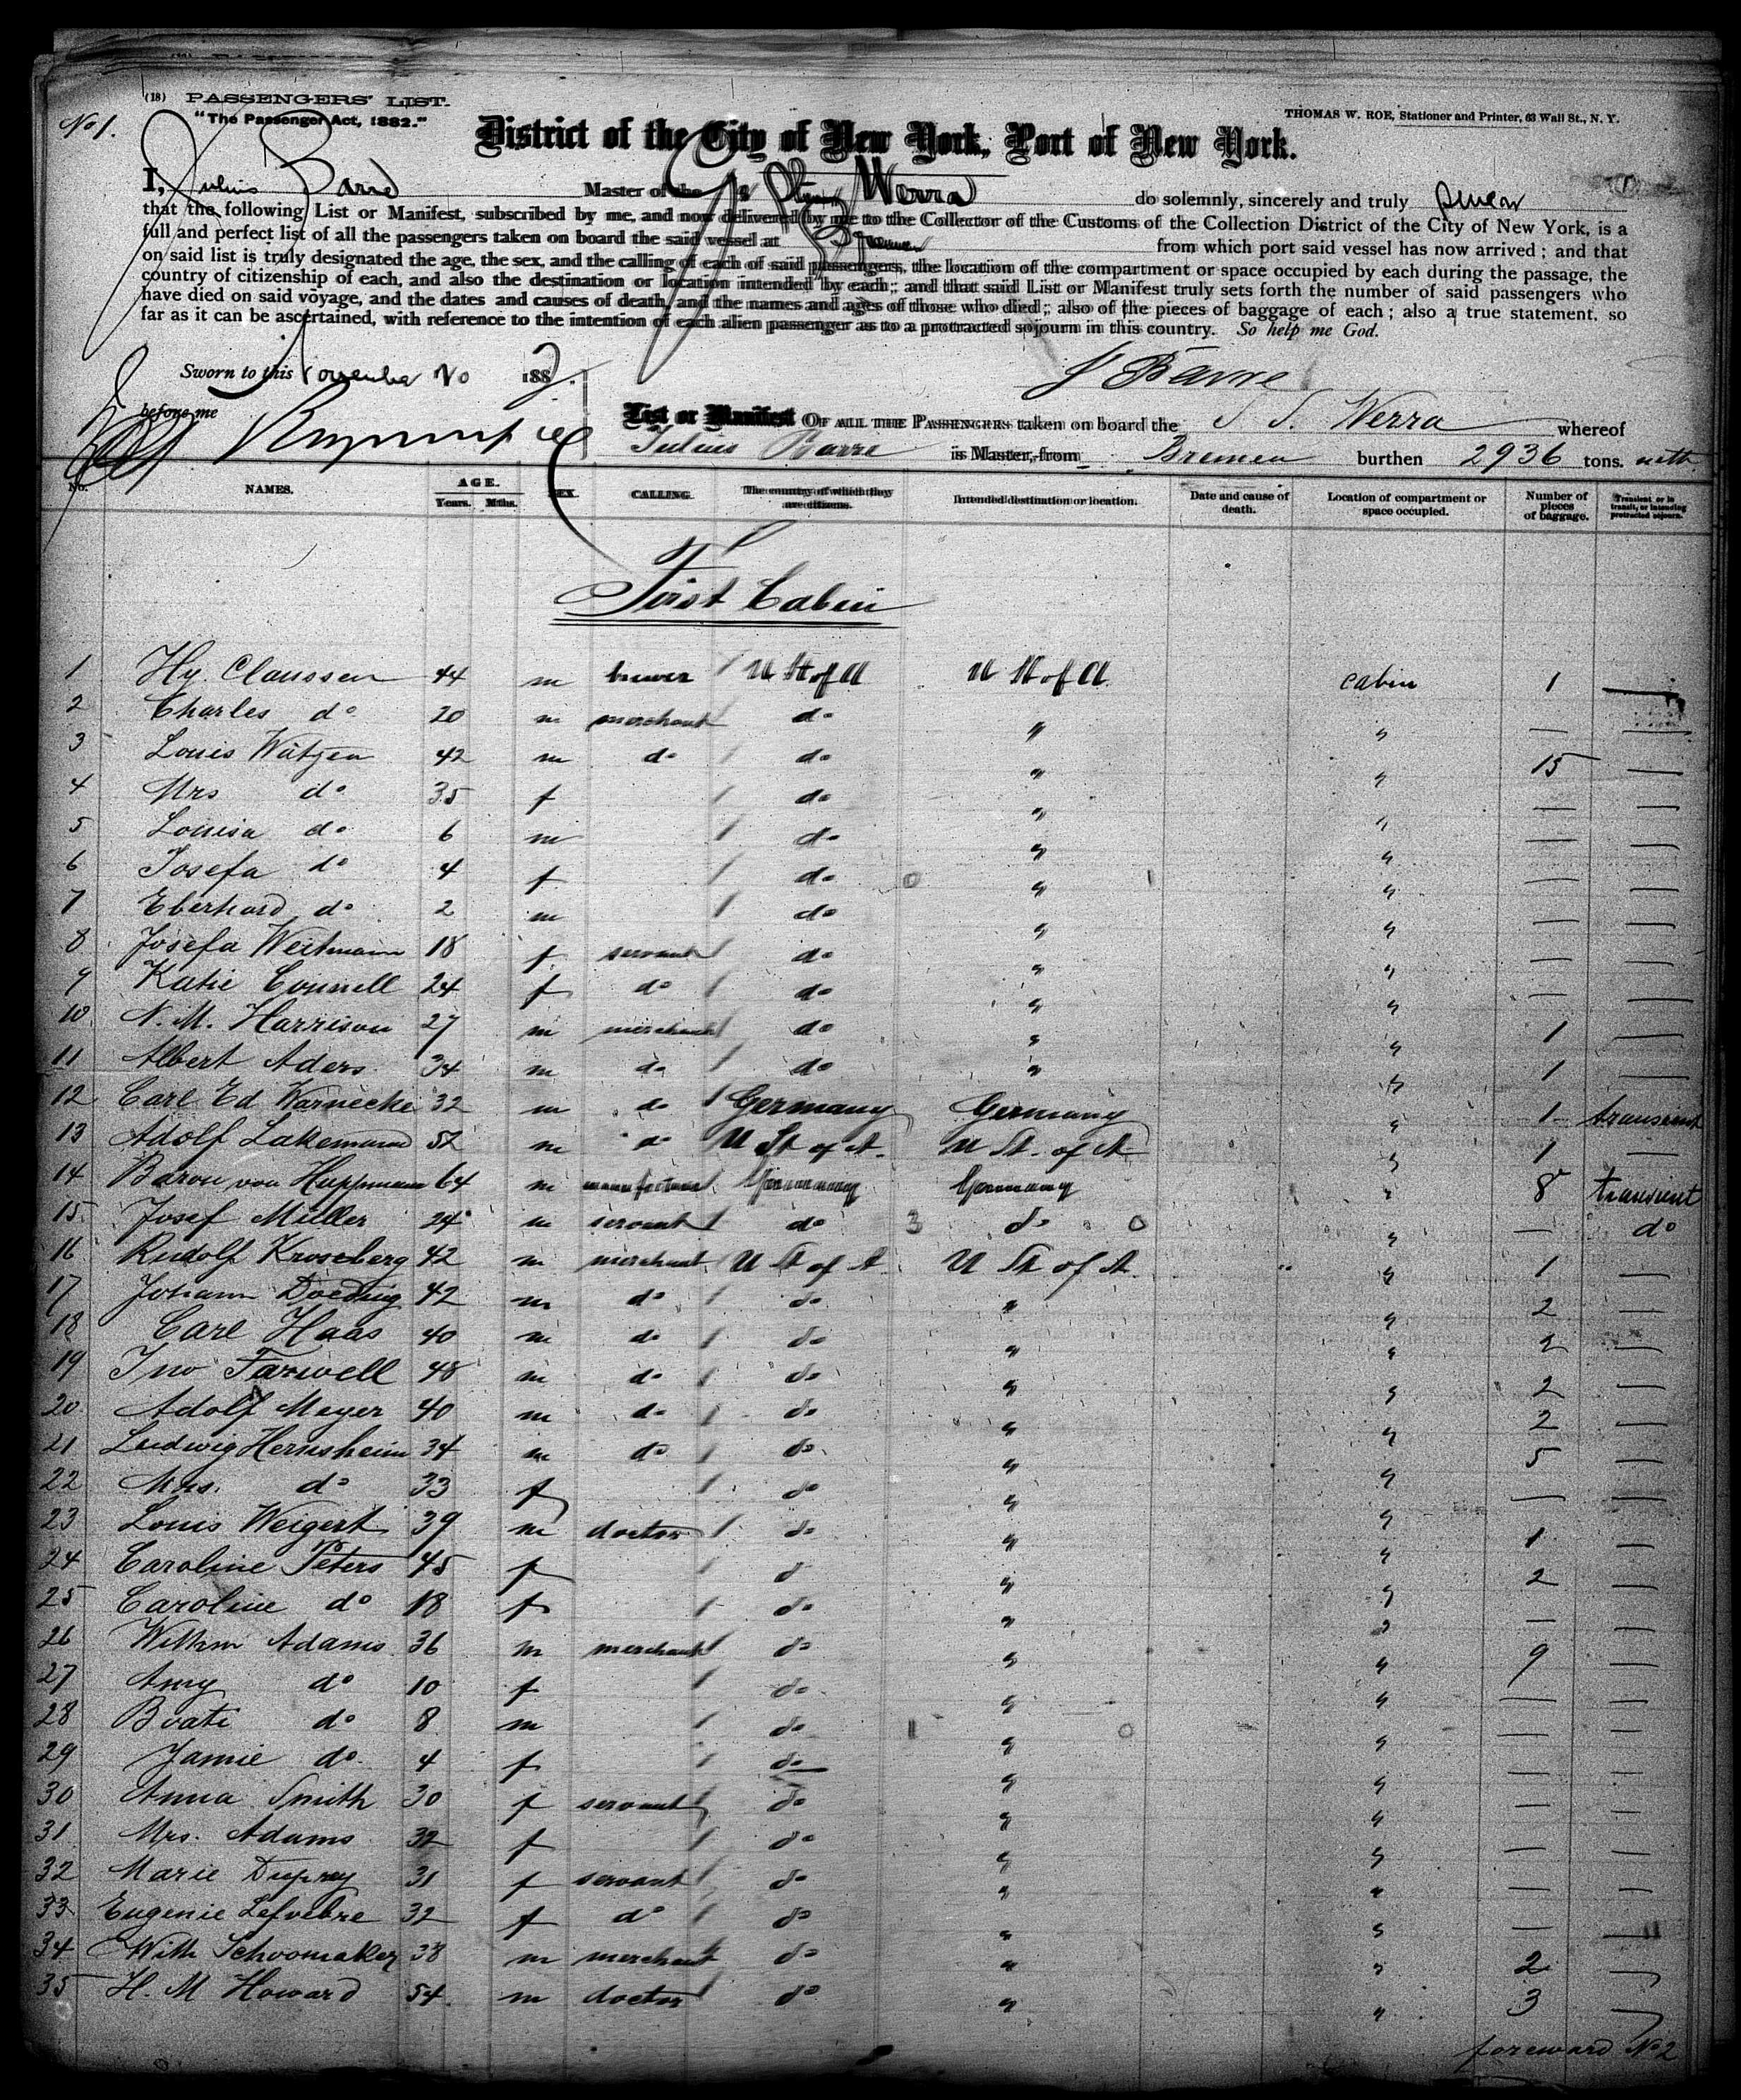 (18) PASSENGERS' LIST.
No 1. "The Passenger Act, 1882."
THOMAS W. ROE, Stationer and Printer, 63 Wall St., N. Y.
District of the City of New York, Port of New York.
I, Julius Barre Master of the Werra do solemnly, sincerely and truly swear
that the following List or Manifest, subscribed by me, and now delivered by me to the Collector of the Customs of the Collection District of the City of New York, is a
full and perfect list of all the passengers taken on board the said vessel at Bremen from which port said vessel has now arrived; and that
on said list is truly designated the age, the sex, and the calling of each of said passengers, the location of the compartment or space occupied by each during the passage, the
country of citizenship of each, and also the destination or location intended by each; and that said List or Manifest truly sets forth the number of said passengers who
have died on said voyage, and the dates and causes of death, and the names and ages of those who died; also of the pieces of baggage of each; also a true statement, so
far as it can be ascertained, with reference to the intention of each alien passenger as to a protracted sojourn in this country. So help me God.
Sworn to this November 188
J Barre
before me
List or Manifest OF ALL THE PASSENGERS taken on board the S. S. Werra whereof
Julius Barre is Master, from Bremen burthen 2936 tons.
No. NAMES. AGE. Years. Mths. SEX. CALLING. The country of which they are citizens. Intended destination or location. Date and cause of death. Location of compartment or space occupied. Number of pieces of baggage. Transient or in transit, or intending protracted sojourn.
First Cabin
1 Hy. Claussen 44 m brewer U St of A U St of A cabin 1 —
2 Charles do 20 m merchant do " " — —
3 Louis Wätzen 42 m do do " " 15 —
4 Mrs do 35 f do " " — —
5 Louisa do 6 m do " " — —
6 Josefa do 4 f do " " — —
7 Eberhard do 2 m do " " — —
8 Josefa Weitmann 18 f servant do " " — —
9 Katie Connell 24 f do do " " — —
10 N. M. Harrison 27 m merchant do " " 1 —
11 Albert Aders 34 m do do " " 1 —
12 Carl Ed Warnecke 32 m do Germany Germany " 1 transient
13 Adolf Lakemann 52 m do U St of A. U St. of A " 1 —
14 Baron von Huppmann 64 m manufacturer Germany Germany " 8 transient
15 Josef Müller 24 m servant do do " — do
16 Rudolf Kroseberg 42 m merchant U St of A U St of A. " 1 —
17 Johann Doeding 42 m do do " " 2 —
18 Carl Haas 40 m do do " " 2 —
19 Jno Farwell 48 m do do " " 2 —
20 Adolf Meyer 40 m do do " " 2 —
21 Ludwig Hernsheim 34 m do do " " 5 —
22 Mrs. do 33 f do " " — —
23 Louis Weigert 39 m doctor do " " 1 —
24 Caroline Peters 45 f do " " 2 —
25 Caroline do 18 f do " " — —
26 Willm Adams 36 m merchant do " " 9 —
27 Amy do 10 f do " " — —
28 do 8 m do " " — —
29 Jamie do 4 f do " " — —
30 Anna Smith 30 f servant do " " — —
31 Mrs. Adams 32 f do " " — —
32 Marie Duprey 31 f servant do " " — —
33 Eugenie Lefvebre 32 f do do " " — —
34 With Schoomaker 38 m merchant do " " 2 —
35 H. M Howard 54 m doctor do " " 3 —
foreward No 2